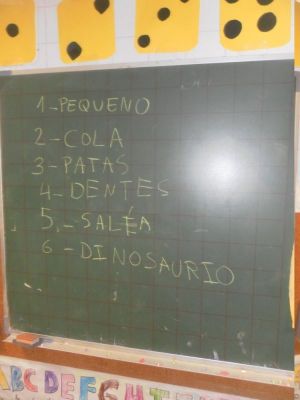 1-PEQUENO
2-COLA
3-PATAS
4-DENTES
5.-SALÉA
6-DINOSAURIO
ABCDEFGHI